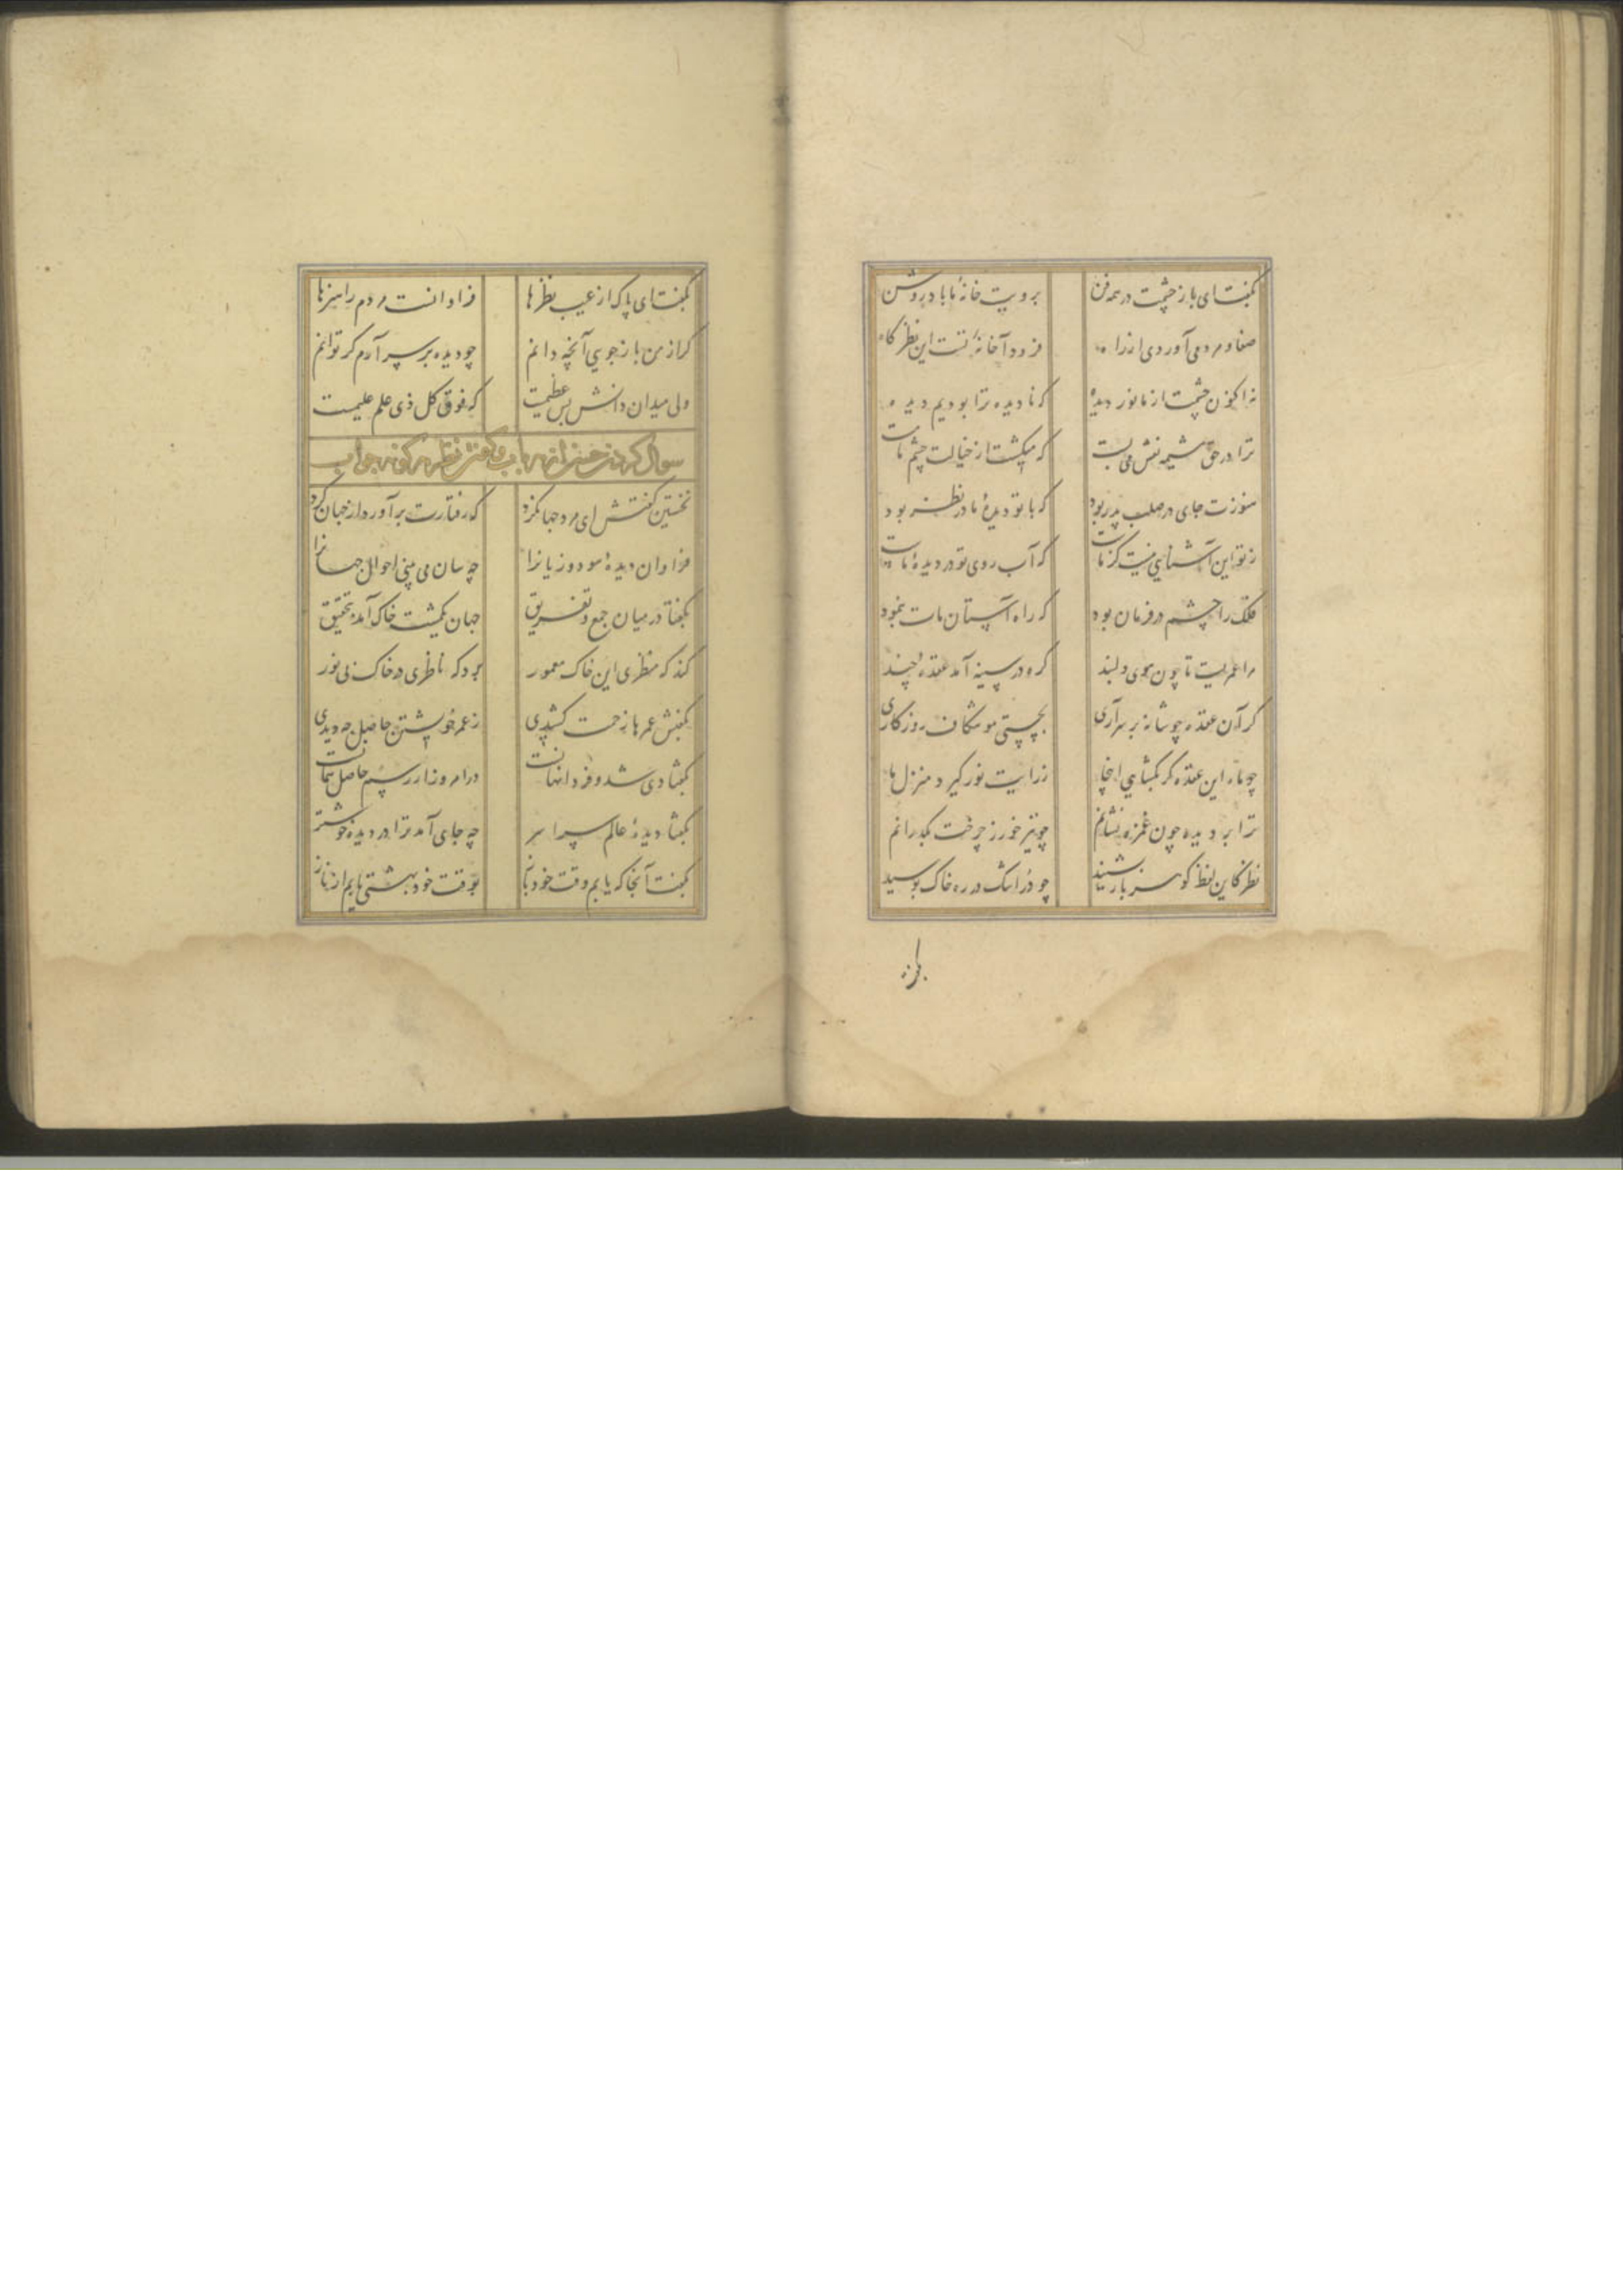 بگفت ای باز چشمت در همه فن برویت خانهٔ ما باد روشن
صفا و مردمی آوردی از راه فرود آ خانهٔ تست این نظرگاه
نه اکنون چشمت از ما نور دیده که نادیده ترا بودیم دیده
ترا در حق مشیمه نقش می بست که میگشت از خیالت چشم ما مست
هنوزت جای در صلب پدر بود که با تو دیدهٔ ما در نظر بود
ز تو این آشنایی نیست کز ماست که آب روی تو در دیدهٔ ماست
فلک را چشم در فرمان بود که راه آستان مات بنمود
مرا عمریست تا چون موی دلبند گره در سینه آمد عقدهٔ چند
گر آن عقده چو شانه بر سر آری بچستی موشکاف روزگاری
چو ماه این عقده گر بگشایی اینجا ز رایت نور گیرد منزل ما
ترا بر دیده چون غمزه نشانم چو تیر خور ز چرخت بگذرانم
نظر کاین لفظ گوهربار بشنید چو در اشک در ره خاک بوسید
بگفت ای پاک از عیب نظرها فراوانست مردم را هنرها
گر از من باز جویی آنچه دانم چو دیده بر سر آرم گر توانم
ولی میدان دانش بس عظیمست که فوق کل ذی علم علیمست
سوال کردن از هر باب و گفتن نظر هر گونه جواب
نخستین گفتش ای مرد جهانگرد که رفتارت برآورد از جهان گرد
فراوان دیدهٔ سود و زیان را چه سان می بینی احوال جهان را
بگفتا در میان جمع و تفریق جهان یکمشت خاک آمد بتحقیق
کند که منظری این خاک معمور برد که ناظری در خاک بی نور
بگفتش عمرها زحمت کشیدی ز عمر خویشتن حاصل چه دیدی
بگفتا دی شد و فردا نهانست در امروز ار رسم حاصل همانست
بگفتا دیدهٔ عالم سراسر چه جای آمد ترا در دیده خوشتر
بگفت آنجا که یابم وقت خود باز بوقت خود بهشتی یابم از ناز